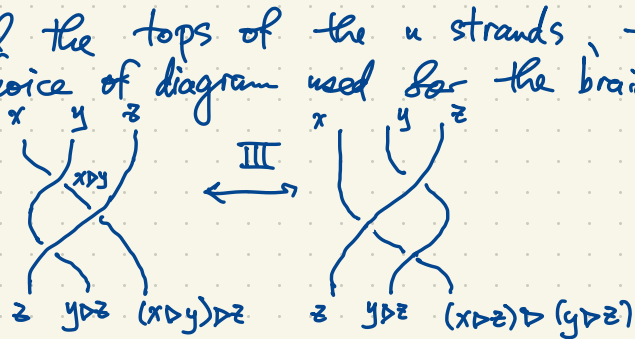 the tops of the n strands,
oice of diagram used for the brai
x y z x y z
III
x▷y
z y▷z (x▷y)▷z z y▷z (x▷z)▷(y▷z)